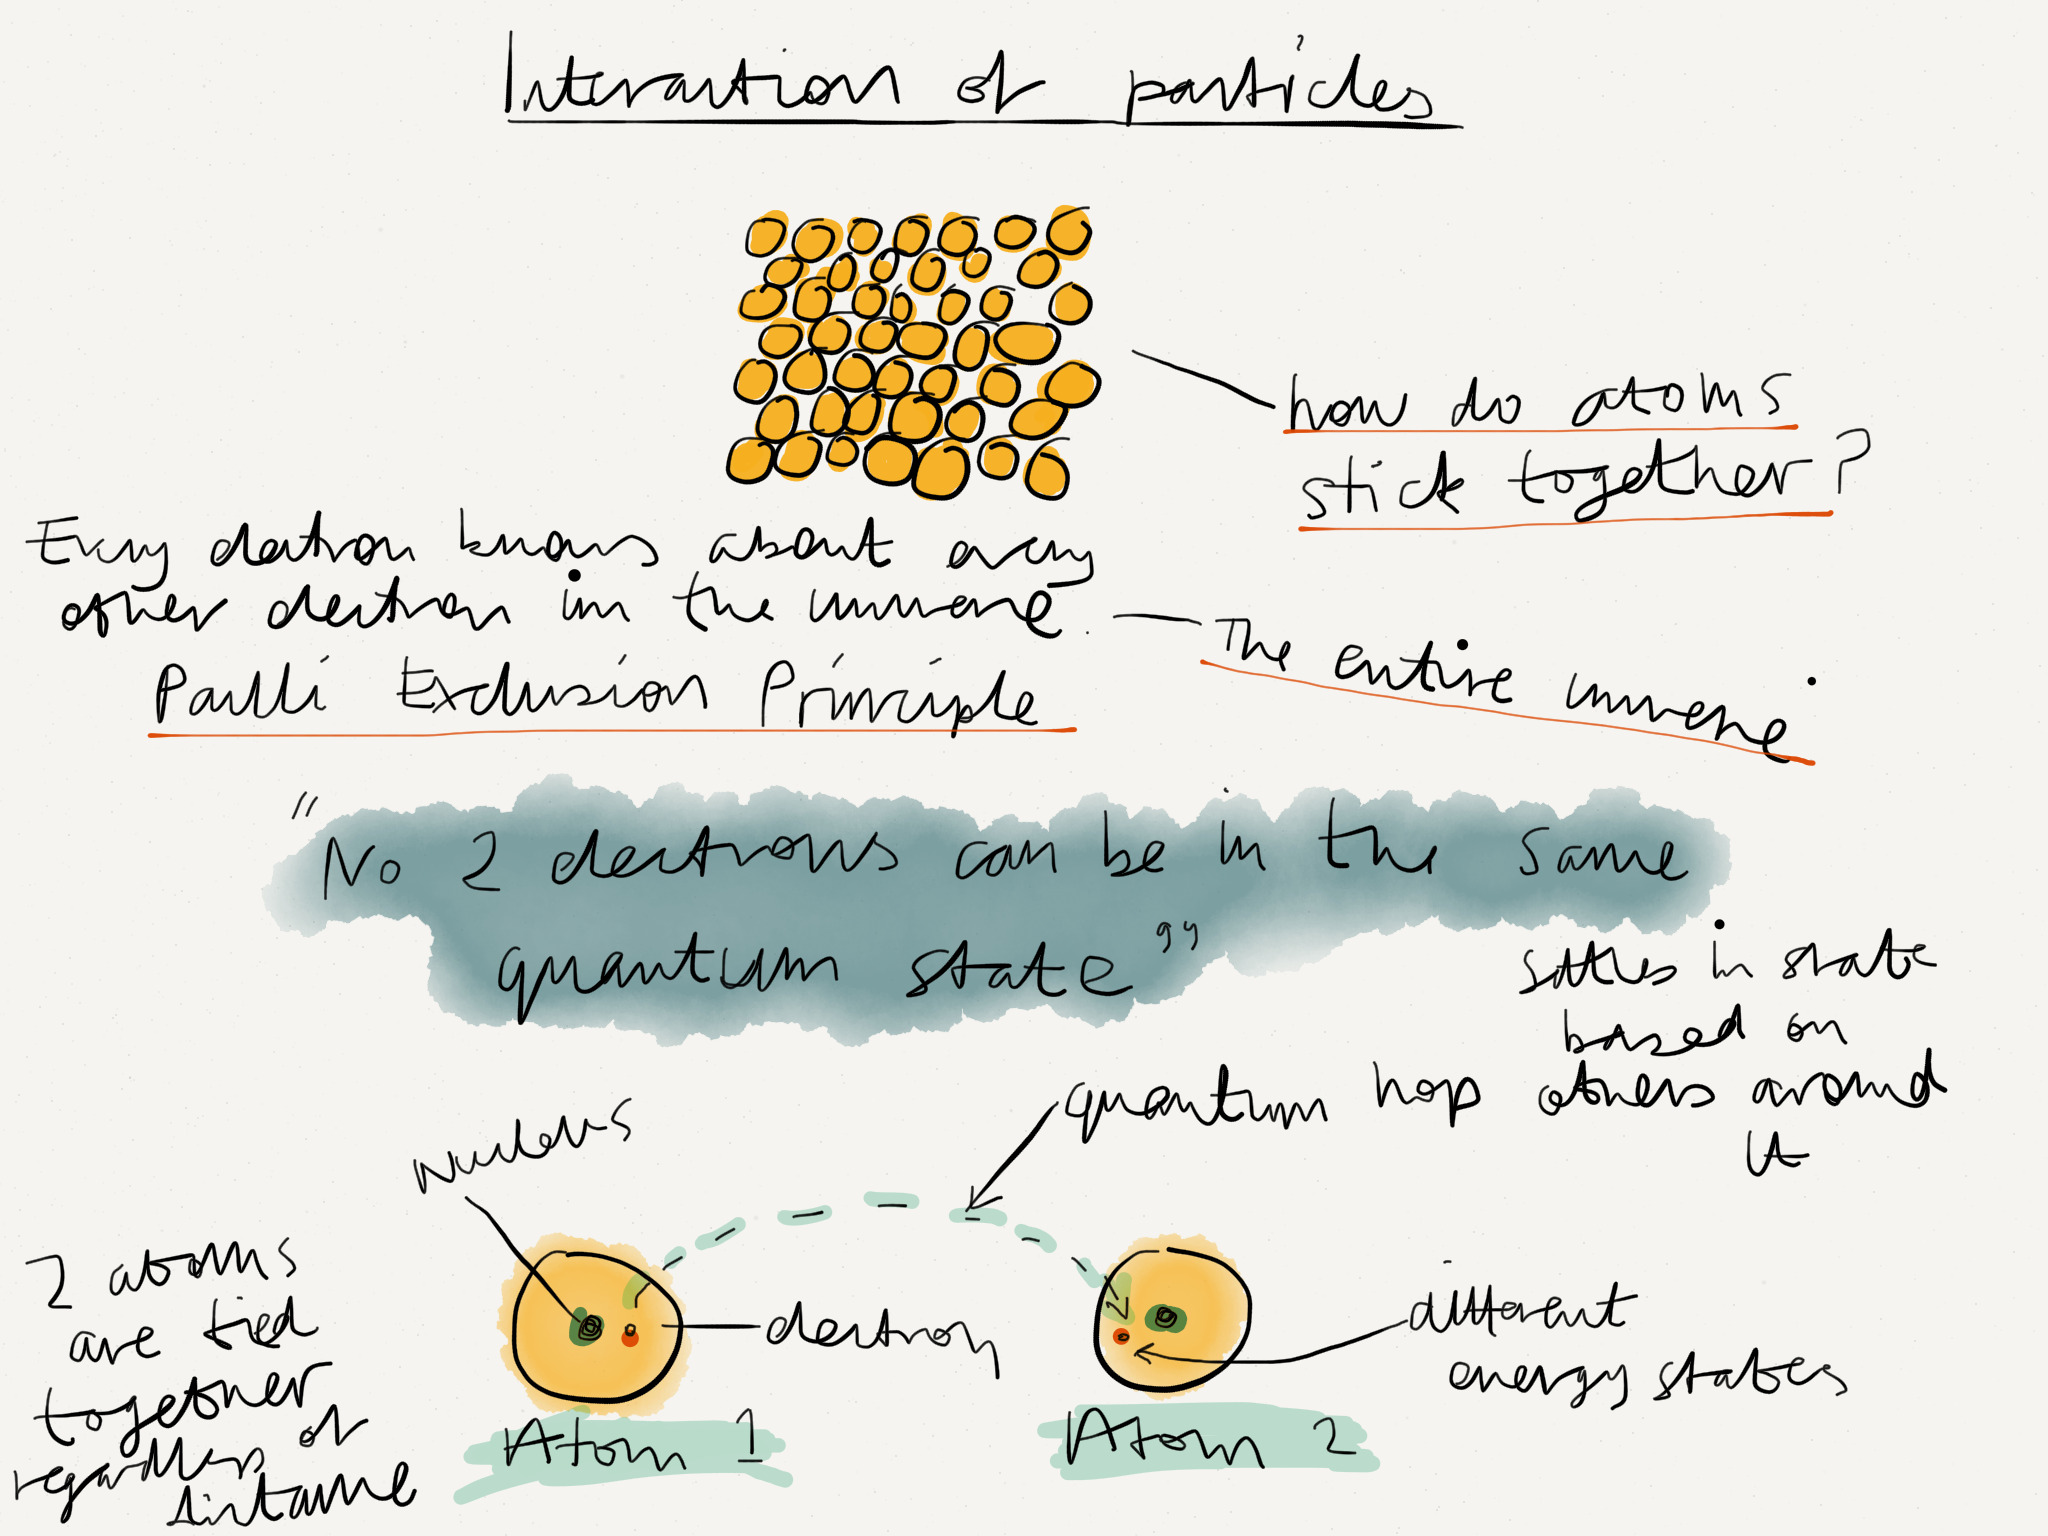 Interaction of particles
how do atoms
stick together?
Every electron knows about every
other electron in the universe.
The entire universe
Paulli Exclusion Principle
"No 2 electrons can be in the same
quantum state"
settles in state
based on
others around
it
quantum hop
nucleus
2 atoms
are tied
together
regardless of
distance
electron
different
energy states
Atom 1
Atom 2